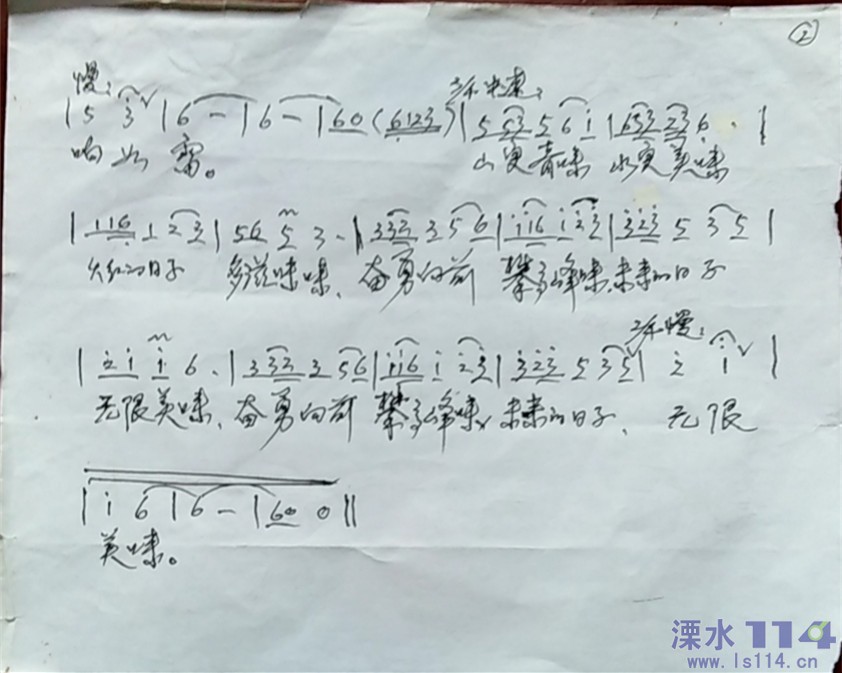 ②
慢:
| 5 3 | 6 — | 6 — | 60 (6123) | 5 53 5 6 i | 653 23 6 · |
响如雷。 山更青味 水更美味
| 116 1 2 3 | 56 5 3 · | 332 3 5 6 | i i6 i 2 3 | 323 5 3 5 |
火红的日子 多滋味味、奋勇向前 攀高峰味,未来的日子
| 2 i i 6 · | 332 3 56 | i i6 i 2 3 | 323 5 3 5 | 2 i |
无限美味、奋勇向前 攀高峰味,未来的日子、无限
| i 6 | 6 — | 60 0 ||
美味。
溧水114
www.ls114.cn